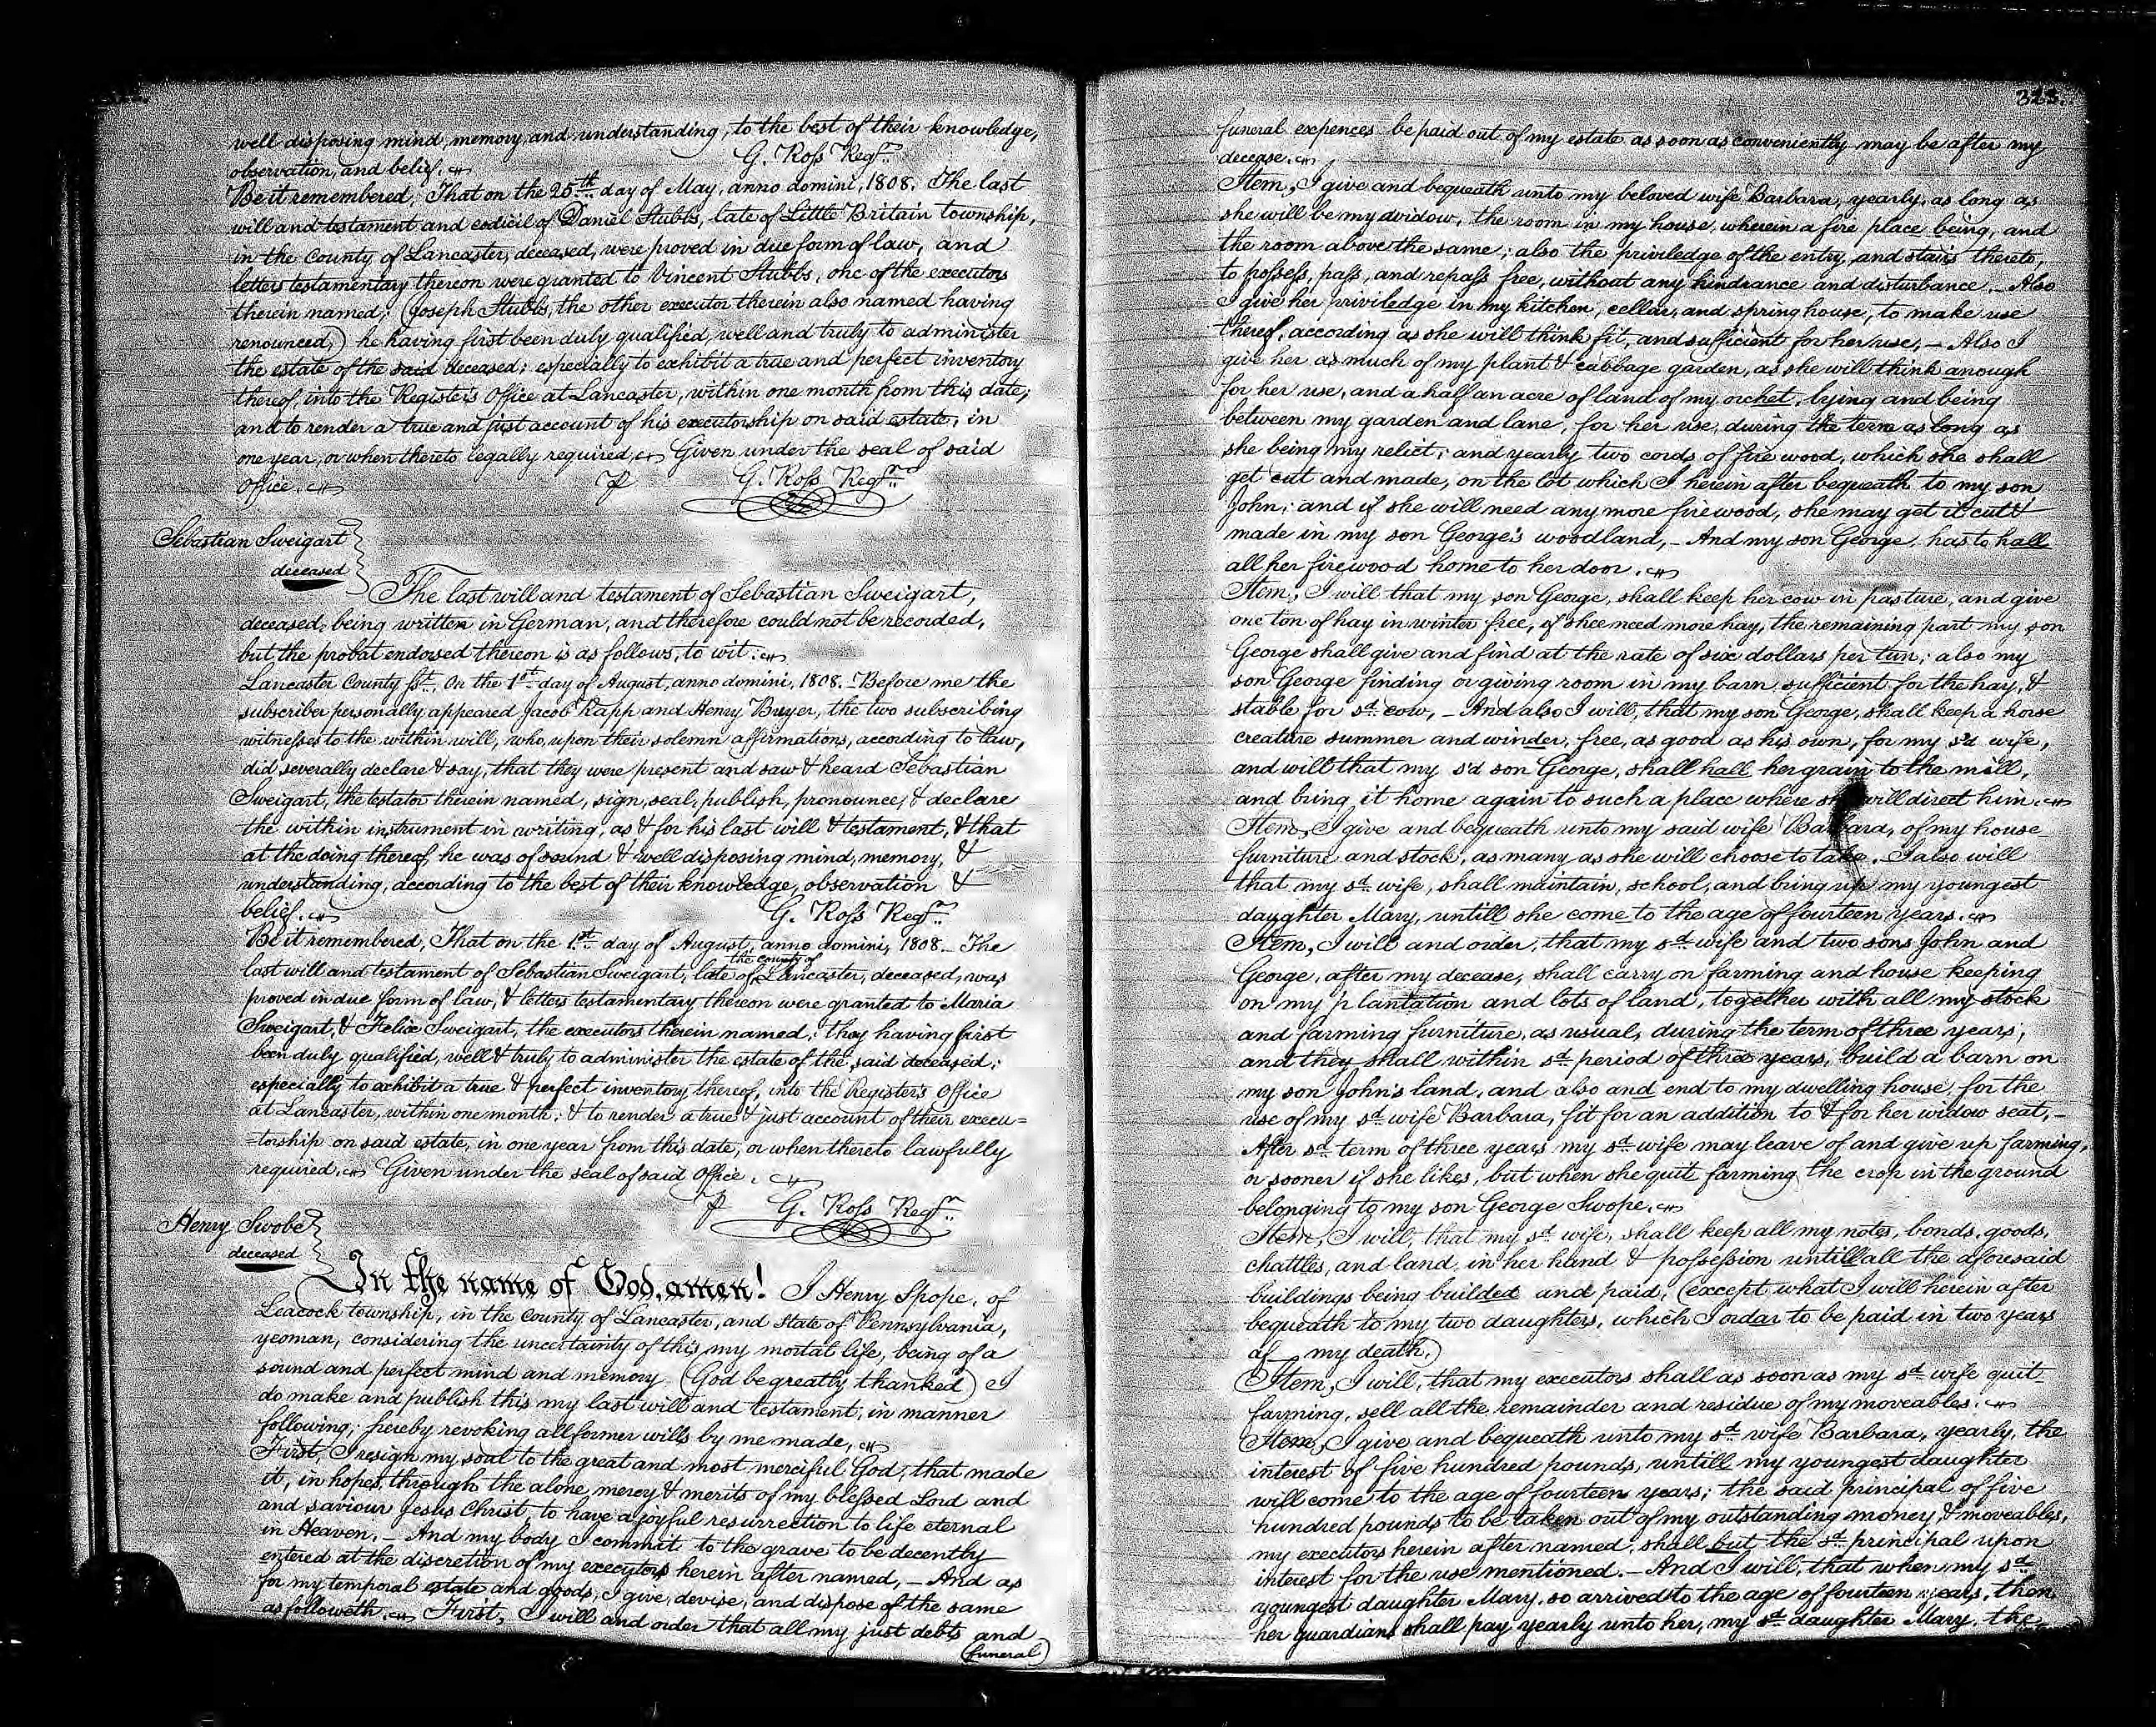 well disposing mind, memory, and understanding, to the best of their knowledge,
observation, and belief.
G. Ross Regr.
Be it remembered, That on the 25th day of May, anno domini, 1808. The last
will and testament and codicil of Daniel Stubbs, late of Little Britain township,
in the County of Lancaster, deceased, were proved in due form of law, and
letters testamentary thereon were granted to Vincent Stubbs, one of the executors
therein named; (Joseph Stubbs, the other executor therein also named having
renounced,) he having first been duly qualified, well and truly to administer
the estate of the said deceased; especially to exhibit a true and perfect inventory
thereof, into the Register's Office at Lancaster, within one month from this date;
and to render a true and just account of his executorship on said estate, in
one year, or when thereto legally required. Given under the seal of said
Office.
G. Ross Regr.
Sebastian Sweigart
deceased
The last will and testament of Sebastian Sweigart,
deceased, being written in German, and therefore could not be recorded,
but the probat endorsed thereon is as follows, to wit:
Lancaster County Ss. On the 1st day of August, anno domini, 1808. Before me the
subscriber personally appeared Jacob Rapp and Henry Buyer, the two subscribing
witnesses to the within will, who, upon their solemn affirmations, according to law,
did severally declare & say, that they were present and saw & heard Sebastian
Sweigart, the testator therein named, sign, seal, publish, pronounce, & declare
the within instrument in writing, as & for his last will & testament, & that
at the doing thereof, he was of sound & well disposing mind, memory, &
understanding, according to the best of their knowledge, observation &
belief.
G. Ross Regr.
Be it remembered, That on the 1st day of August, anno domini, 1808. The
last will and testament of Sebastian Sweigart, late of the county of Lancaster, deceased, was
proved in due form of law, & letters testamentary thereon were granted to Maria
Sweigart, & Felix Sweigart, the executors therein named; they having first
been duly qualified, well & truly to administer the estate of the said deceased;
especially to exhibit a true & perfect inventory thereof, into the Register's Office
at Lancaster, within one month; & to render a true & just account of their execu=
=torship on said estate, in one year from this date, or when thereto lawfully
required. Given under the seal of said Office.
G. Ross Regr.
Henry Swobe
deceased
In the name of God, amen! I Henry Spope, of
Leacock township, in the County of Lancaster, and State of Pennsylvania,
yeoman, considering the uncertainty of this my mortal life, being of a
sound and perfect mind and memory (God be greatly thanked) I
do make and publish this my last will and testament, in manner
following; hereby revoking all former wills by me made,
First, I resign my soul to the great and most merciful God, that made
it, in hopes, through the alone mercy & merits of my blessed Lord and
and saviour Jesus Christ, to have a joyful resurrection to life eternal
in Heaven. — And my body I commit to the grave to be decently
entered at the discretion of my executors herein after named, — And as
for my temporal estate and goods, I give, devise, and dispose of the same
as followeth. First, I will and order that all my just debts and
(funeral)
323.
funeral expences be paid out of my estate as soon as conveniently may be after my
decease.
Item, I give and bequeath unto my beloved wife Barbara, yearly, as long as
she will be my avidow, the room in my house, wherein a fire place being, and
the room above the same; also the priviledge of the entry, and stairs thereto,
to possess, pass, and repass free, without any hindrance and disturbance. — Also
I give her priviledge in my kitchen, cellar, and spring house, to make use
thereof, according as she will think fit, and sufficient for her use. — Also I
give her as much of my plant & cabbage garden, as she will think anough
for her use, and a half an acre of land of my orchet, lying and being
between my garden and lane, for her use, during the term as long as
she being my relict; and yearly two cords of fire wood, which she shall
get cut and made, on the lot which I herein after bequeath to my son
John; and if she will need any more fire wood, she may get it cut &
made in my son George's woodland, — And my son George, has to hall
all her firewood home to her door.
Item, I will that my son George, shall keep her cow in pasture, and give
one ton of hay in winter free, if shee need more hay, the remaining part my son
George shall give and find at the rate of six dollars per tun; also my
son George finding or giving room in my barn sufficient for the hay, &
stable for sd. cow, — And also I will, that my son George, shall keep a horse
creature summer and winder, free, as good as his own, for my s'd wife,
and will that my s'd son George, shall hall her grain to the mill,
and bring it home again to such a place where she will direct him.
Item, I give and bequeath unto my said wife Barbara, of my house
furniture and stock, as many as she will choose to take. I also will
that my sd. wife, shall maintain, school, and bring up my youngest
daughter Mary, untill she come to the age of fourteen years.
Item, I will and order, that my sd. wife and two sons John and
George, after my decease, shall carry on farming and house keeping
on my plantation and lots of land, together with all my stock
and farming furniture, as usual, during the term of three years,
and they shall within sd. period of three years, build a barn on
my son John's land, and also and end to my dwelling house, for the
use of my sd. wife Barbara, fit for an addition to & for her widow seat, —
After sd. term of three years my sd. wife may leave of and give up farming,
or sooner if she likes, but when she quit farming the crop in the ground
belonging to my son George Swope.
Item, I will, that my sd. wife, shall keep all my notes, bonds, goods,
chattles, and land, in her hand & possession untill all the aforesaid
buildings being builded and paid, (except what I will herein after
bequeath to my two daughters, which I ordar to be paid in two years
af my death.)
Item, I will, that my executors shall as soon as my sd. wife quit
farming, sell all the remainder and residue of my moveables.
Item, I give and bequeath unto my sd. wife Barbara, yearly, the
interest of five hundred pounds, untill my youngest daughter
will come to the age of fourteen years; the said principal of five
hundred pounds to be taken out of my outstanding money, & moveables,
my executors herein after named, shall but the sd. principal upon
interest for the use mentioned. — And I will, that when my sd.
youngest daughter Mary, so arrived to the age of fourteen years, then
her guardians shall pay yearly unto her, my sd. daughter Mary, the